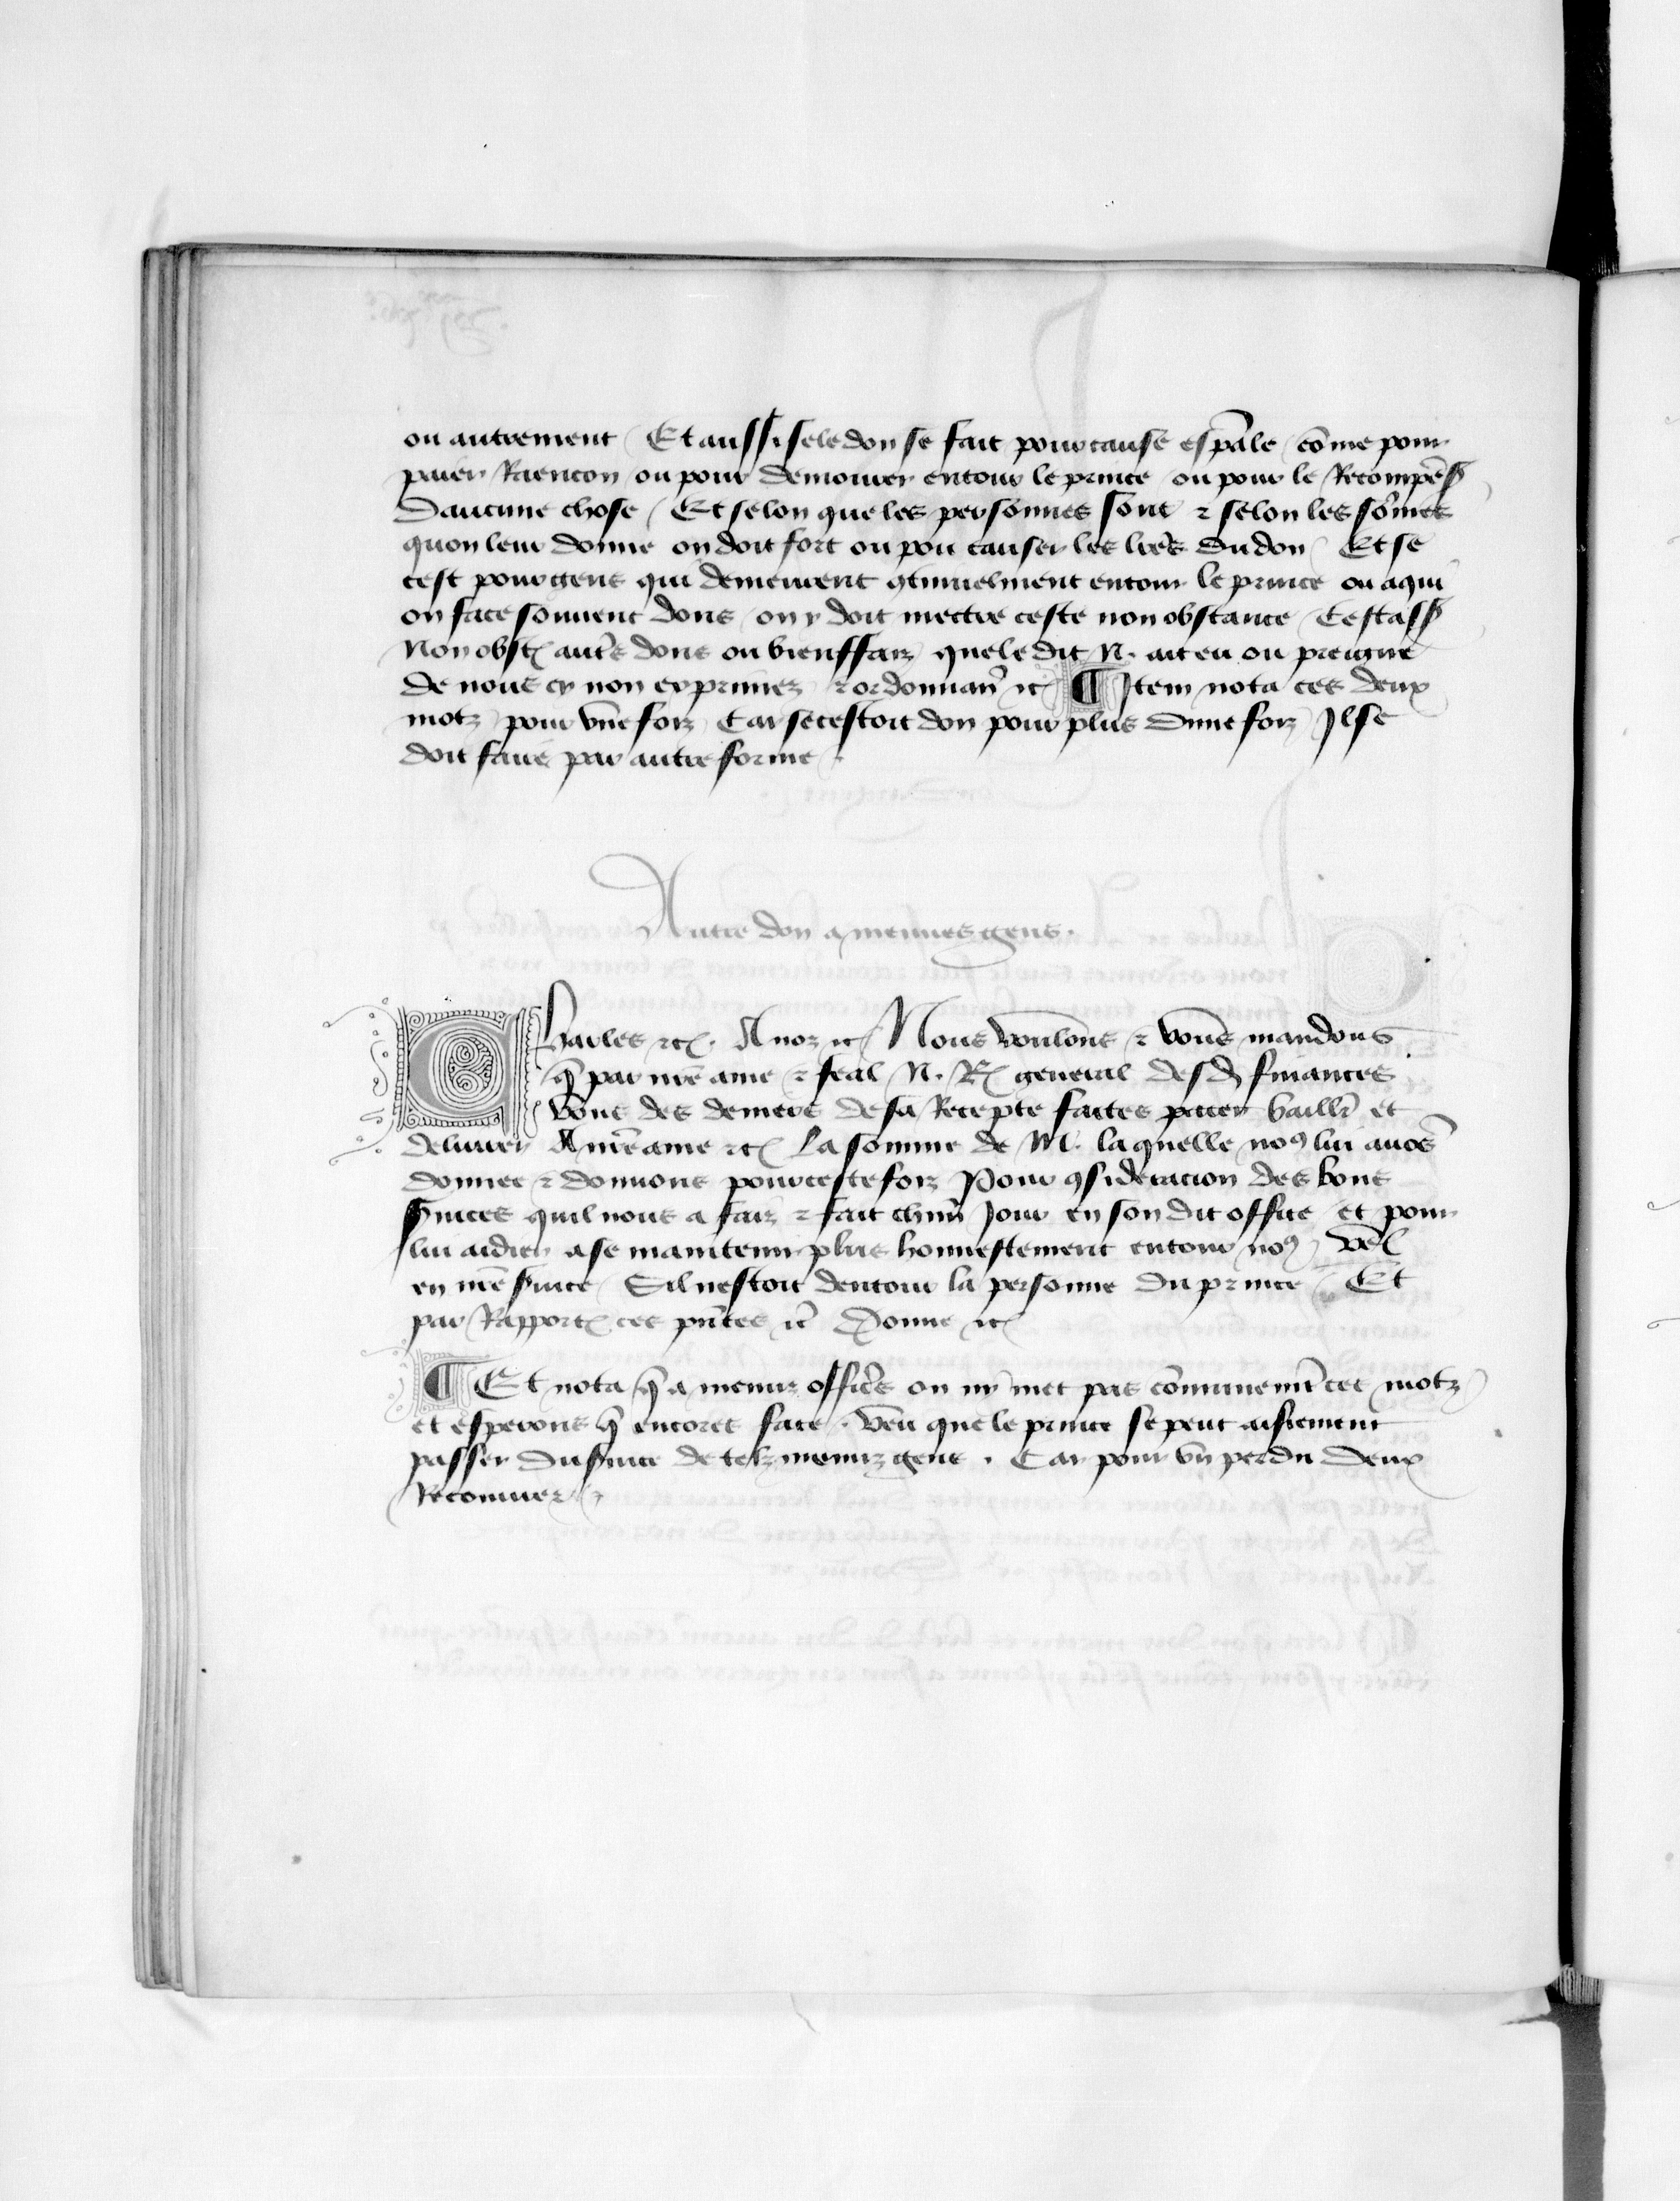 ou autrement Et aussi se le don se fait pour cause esp̄ale cōme pour
paier Raencon ou pour demourer entour le prince ou pour le Recompēs̄
daucune chose Et selon que les personnes sont ⁊ selon les sōmes
quon leur donne on doit fort ou pou causer les lrēs du don Et se
cest pour gens qui demeurent ꝯtinuelment entour le prince ou a qui
on face souuent dons on y doit mectre ceste non obstance Cestass̄
Non obst̄ autēs dons ou bienffaiz que le dit N. ait eu ou preigne
de nous cy non exprimez ⁊ ordonnan̄ ⁊c̄ ¶ Item nota ces deux
motz pour vne foiz Car se cestoit don pour plus dune foiz Il se
doit faire par autre forme
Autre don a menues gens.
Charles ⁊c̄. A noz ⁊c̄ Nous voulons ⁊ vous mandons
q̄ par nrē ame ⁊ feal N. R̄ general desd̄ finances
vous des deniers de sa Recepte faictes paier baillr̄ et
deliurer A nrē ame ⁊c̄ La somme de M. laquelle noꝰ lui auōs
donnee ⁊ donnons pour ceste foiz Pour ꝯsideracion des bons
s̄uices quil nous a faiz ⁊ fait chūn Jour en son dit office et pour
lui aidier a se maintenir plus honnestement entour noꝰ vel̄
en nrē s̄uice Sil nestoit dentour la personne du prince Et
par Rapport̄ ces pn̄tes ⁊c̄ Donne ⁊c̄
¶ Et nota q̄ a menuz officrs̄ on ny met pas cōmunemt̄ ces motz
et esperons q̄ encores face. veu que le prince se peut aisiement
passer du s̄uice de telz menuz gens. Car pour vn̄ perdu deux
Recouurez